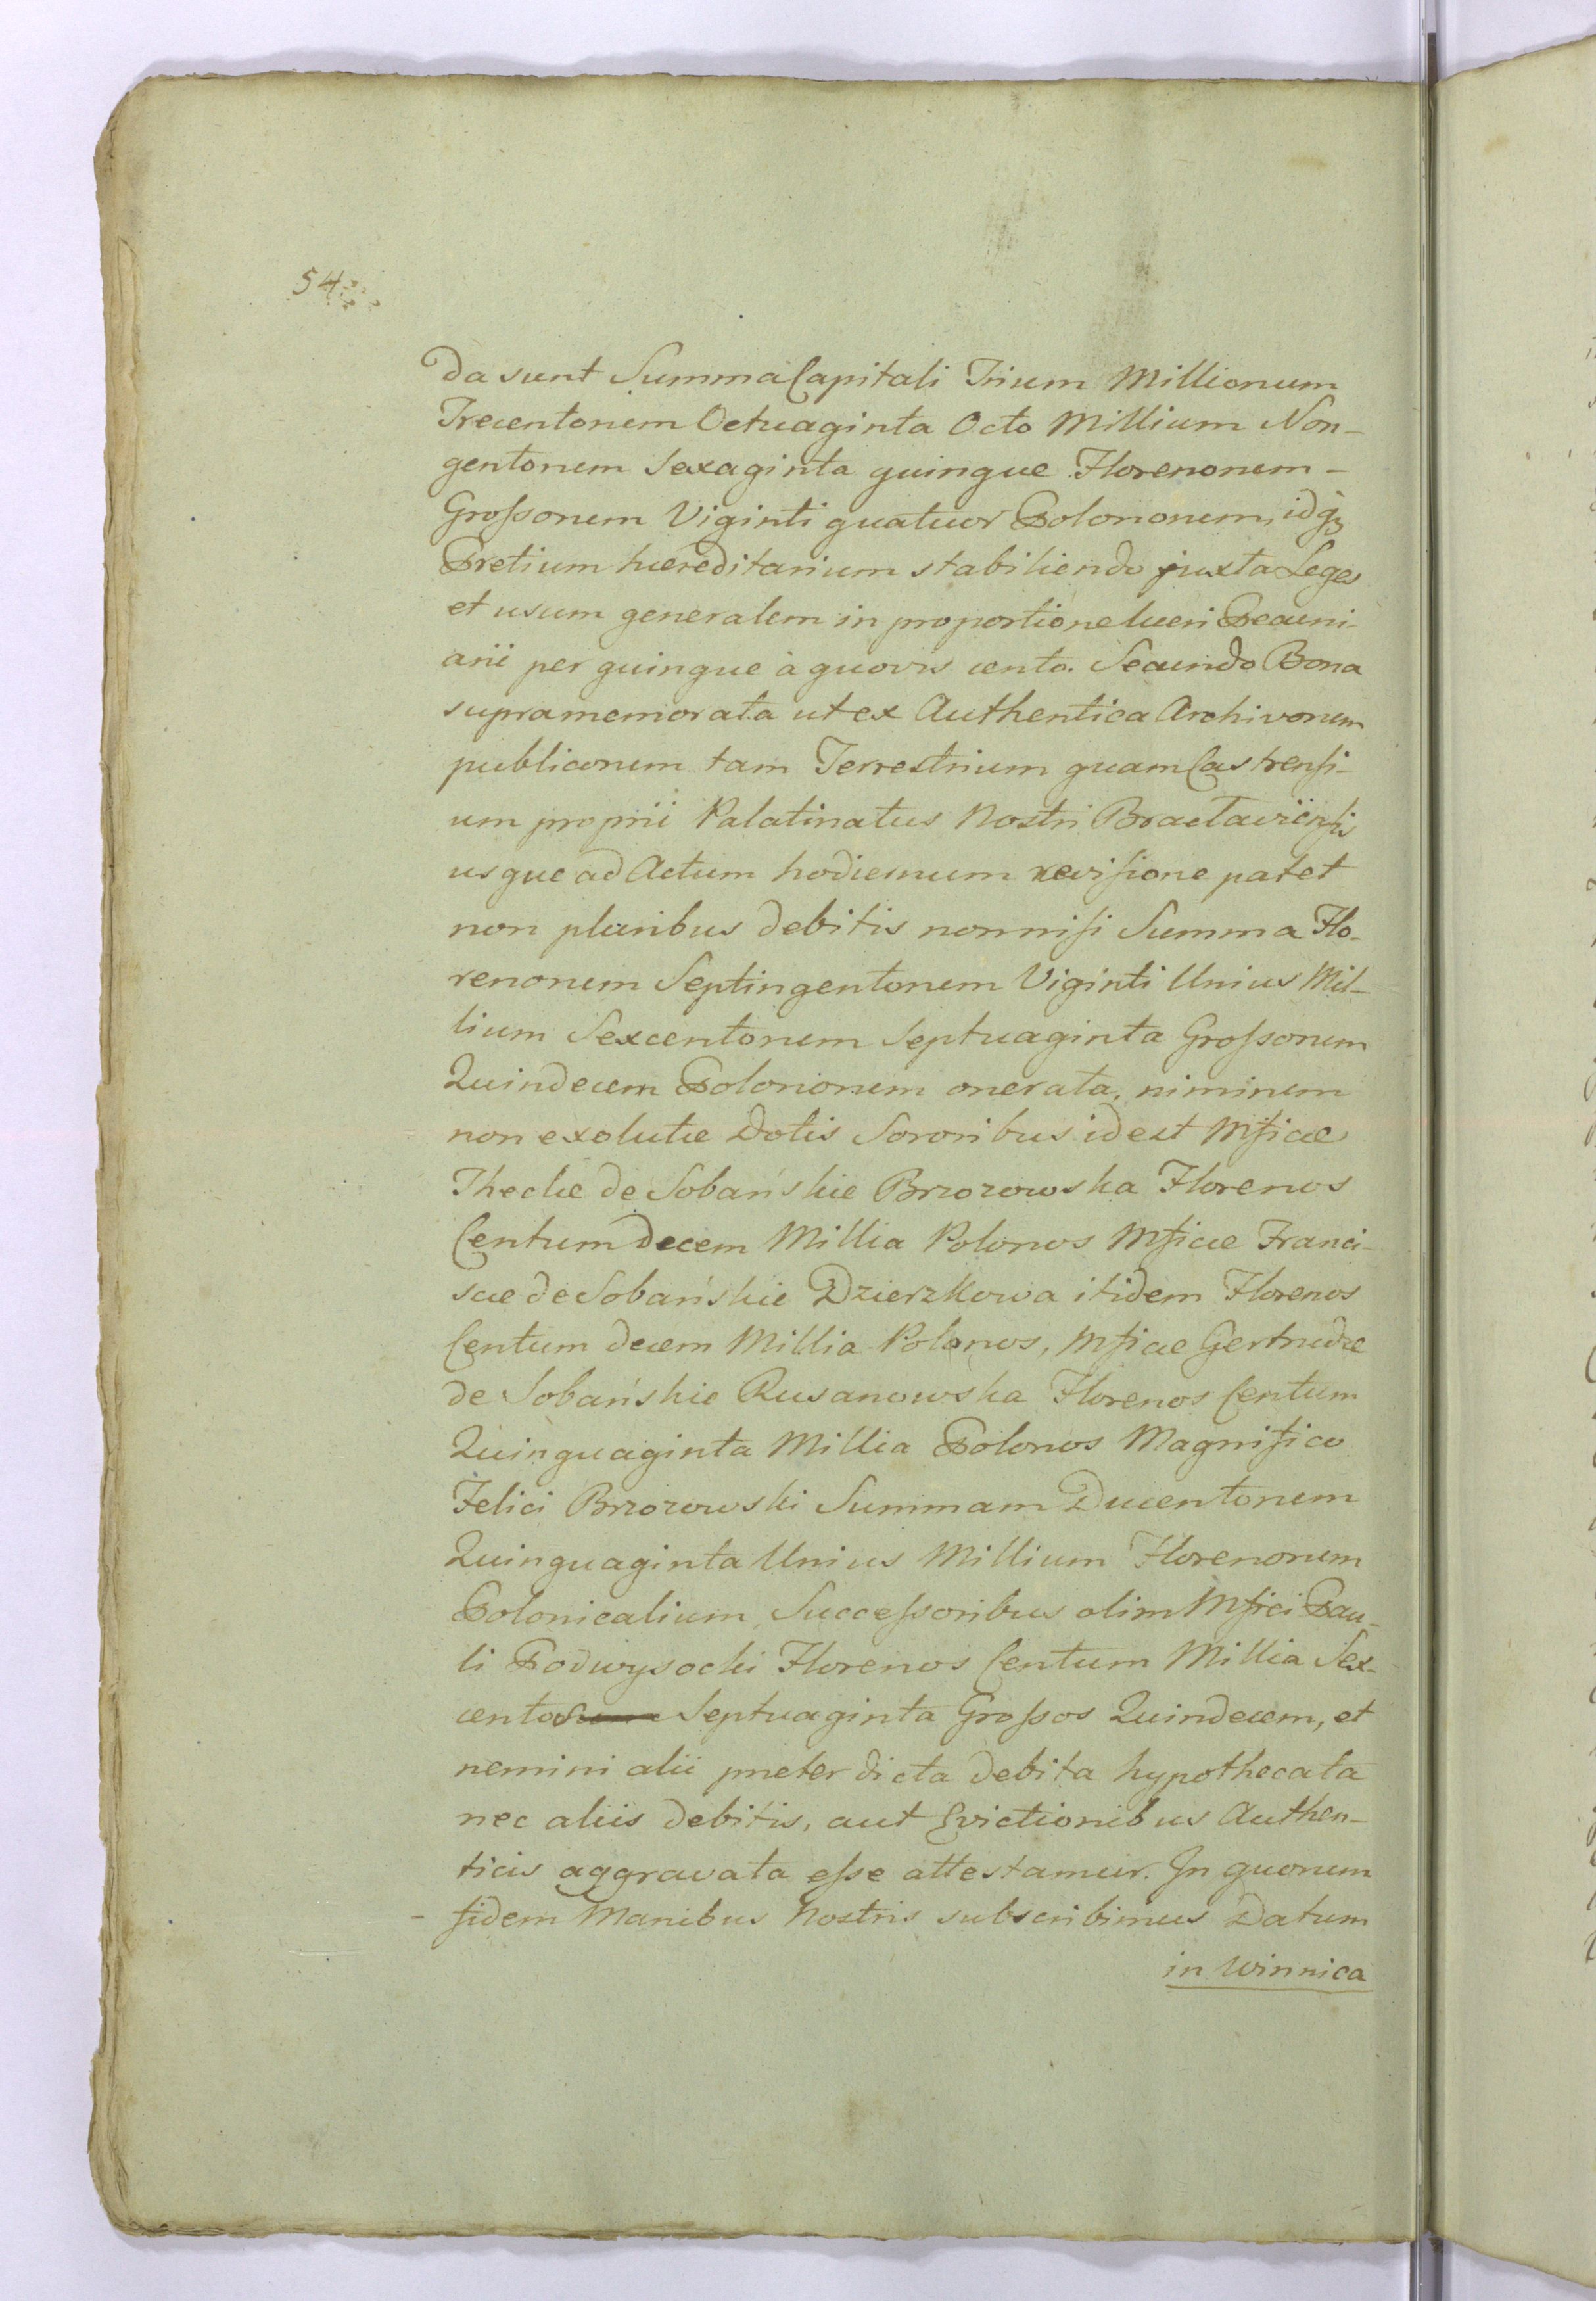 54
da sunt Summa Capitali Trium Millionum
Trecentorum Octuaginta Octo Millium Non-
gentorum Sexaginta quinque Florenorum -
Grossorum Viginti quatuor Polonorum, idq
Pretium hæreditarium stabiliendo juxta Leges
et usum generalem in proportione lucri Pecuni-
arii per quinque à quovis cento. Secundo Bona
supramemorata ut ex Authentica Archivorum
publicorum tam Terrestrium quam Castrensi-
um proprii Palatinatus Nostri Braclaviensis
usque ad Actum hodiernum revisione patet
non pluribus debitis nonnisi Summa Flo-
renorum Septingentorum Viginti Unius Mil-
lium Sexcentorum Septuaginta Grossorum
Quindecem Polonorum onerata, nimirum
non exolutæ Dotis Sororibus id est Mficæ
Theclæ de Sobańskie Brzozowska Florenos
Centum decem Millia Polonos Mficæ Franci-
scæ de Sobańskie Dzierzkowa itidem Florenos
Centum decem Millia Polonos, Mficæ Gertrudæ
de Sobańskie Rusanowska Florenos Centum
Quinquaginta Millia Polonos Magnifico
Felici Brzozowski Summam Ducentorum
Quinquaginta Unius Millium Florenorum
Polonicalium, Successoribus olim Mfici Pau-
li Podwysocki Florenos Centum Millia Sex-
centos Septuaginta Grossos Quindecem, et
nemini alii præter dicta debita hypothecata
nec aliis debitis, aut Evictionibus Authen-
ticis aggravata esse attestamur. In quorum
- fidem Manibus Nostris subscribimus Datum
in Winnica